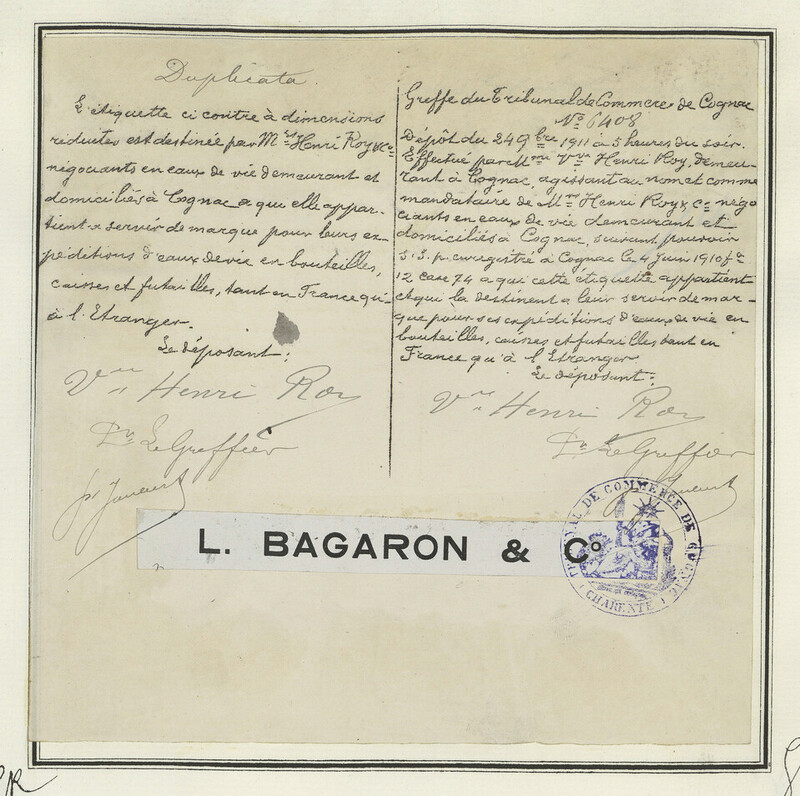 Duplicata.
L'étiquette ci contre à dimensions
réduites est destinée par Mrs Henri Roy & Co
négociants en eaux de vie demeurant et
domiciliés à Cognac a qui elle appar-
tient a servir de marque pour leurs ex-
péditions d'eaux de vie en bouteilles,
caisses et futailles, tant en France qu'
à l'Etranger.
Le déposant:
Vve Henri Roy
Pr Le Greffier
Greffe du Tribunal de Commerce de Cognac
No 6408
Dépôt du 24 9bre 1911 à 5 heures du soir.
Effectué par Mme Vve Henri Roy, demeu-
rant à Cognac, agissant au nom et comme
mandataire de Mrs Henri Roy & Co négo
ciants en eaux de vie demeurant et
domiciliés à Cognac, suivant pouvoir
S. S. p. enregistré à Cognac le 4 Juin 1910 fo
12 case 74 a qui cette étiquette appartient
et qui la destinent a leur servir de mar-
que pour ses expéditions d'eaux de vie en
bouteilles, caisses et futailles tant en
France qu'à l'Etranger
Le déposant:
Vve Henri Roy
Pr Le Greffier
L. BAGARON & Co
TRIBUNAL DE COMMERCE DE COGNAC
(CHARENTE)